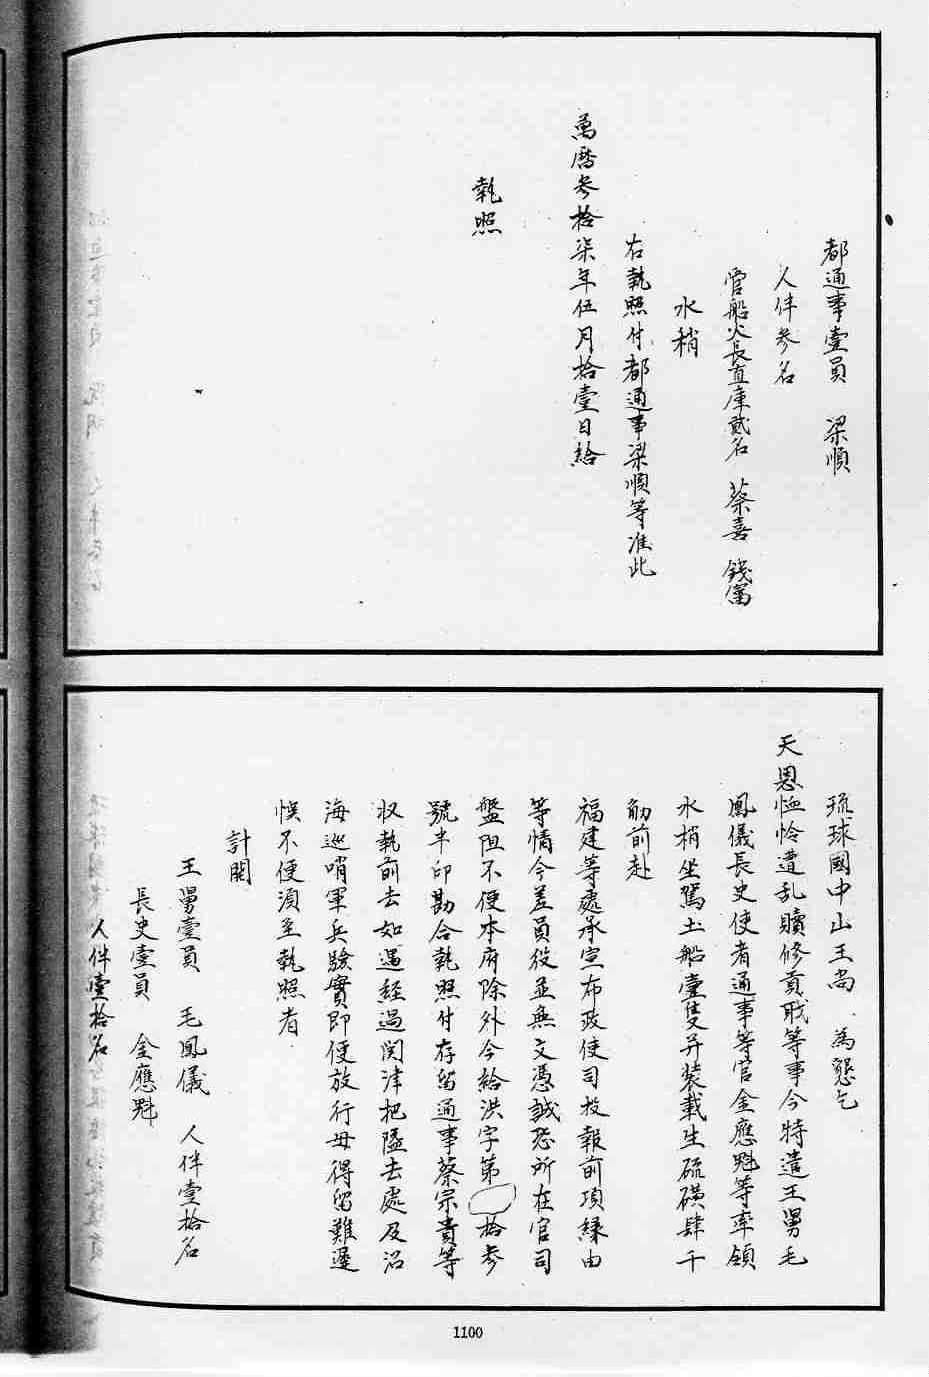 都通事壹員 梁順
人伴参名
管船火長直庫貳名 蔡喜 錢富
水稍
右執照付都通事梁順等准此
萬曆参拾柒年伍月拾壹日給
執照
琉球國中山王尚 為懇乞
天恩恤怜遭乱贖修貢職等事今特遣王舅毛
鳳儀長史使者通事等官金應魁等率領
水梢坐駕土船壹隻并裝載生硫磺肆千
觔前赴
福建等處承宣布政使司投報前項緣由
等情今差員役並無文憑誠恐所在官司
盤阻不便本府除外今給洪字第 拾参
號半印勘合執照付存留通事蔡宗貴等
収執前去如遇經過関津把隘去處及沿
海巡哨軍兵驗實即便放行毋得留難遲
悞不便須至執照者
計開
王舅壹員 毛鳳儀 人伴壹拾名
長史壹員 金應魁
人伴壹拾名
1100